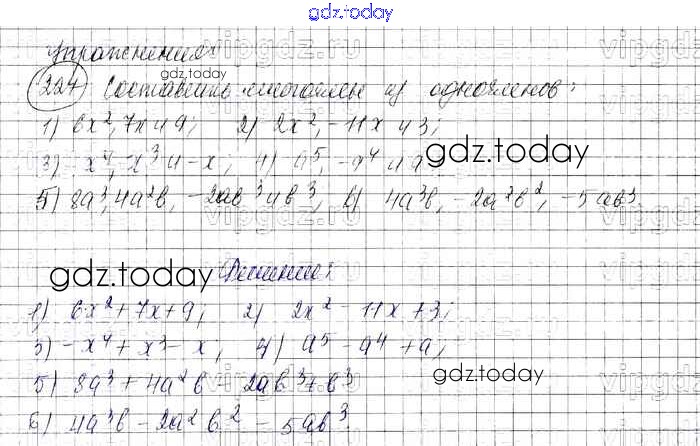 gdz.today
Упражнения:
224 Составить многочлены из одночленов:
gdz.today
1) 6x², 7x и 9; 2) 2x², -11x и 3;
3) -x⁴, x³ и -x; 4) a⁵ - a⁴ и a
gdz.today
5) 8a³, 4a²b, -2ab³ и b³; 6) 4a³b, -2a²b², -5ab³.
gdz.today
Решение:
1) 6x² + 7x + 9; 2) 2x² - 11x + 3;
3) -x⁴ + x³ - x; 4) a⁵ - a⁴ + a;
gdz.today
5) 8a³ + 4a²b - 2ab³ + b³
6) 4a³b - 2a²b² - 5ab³.